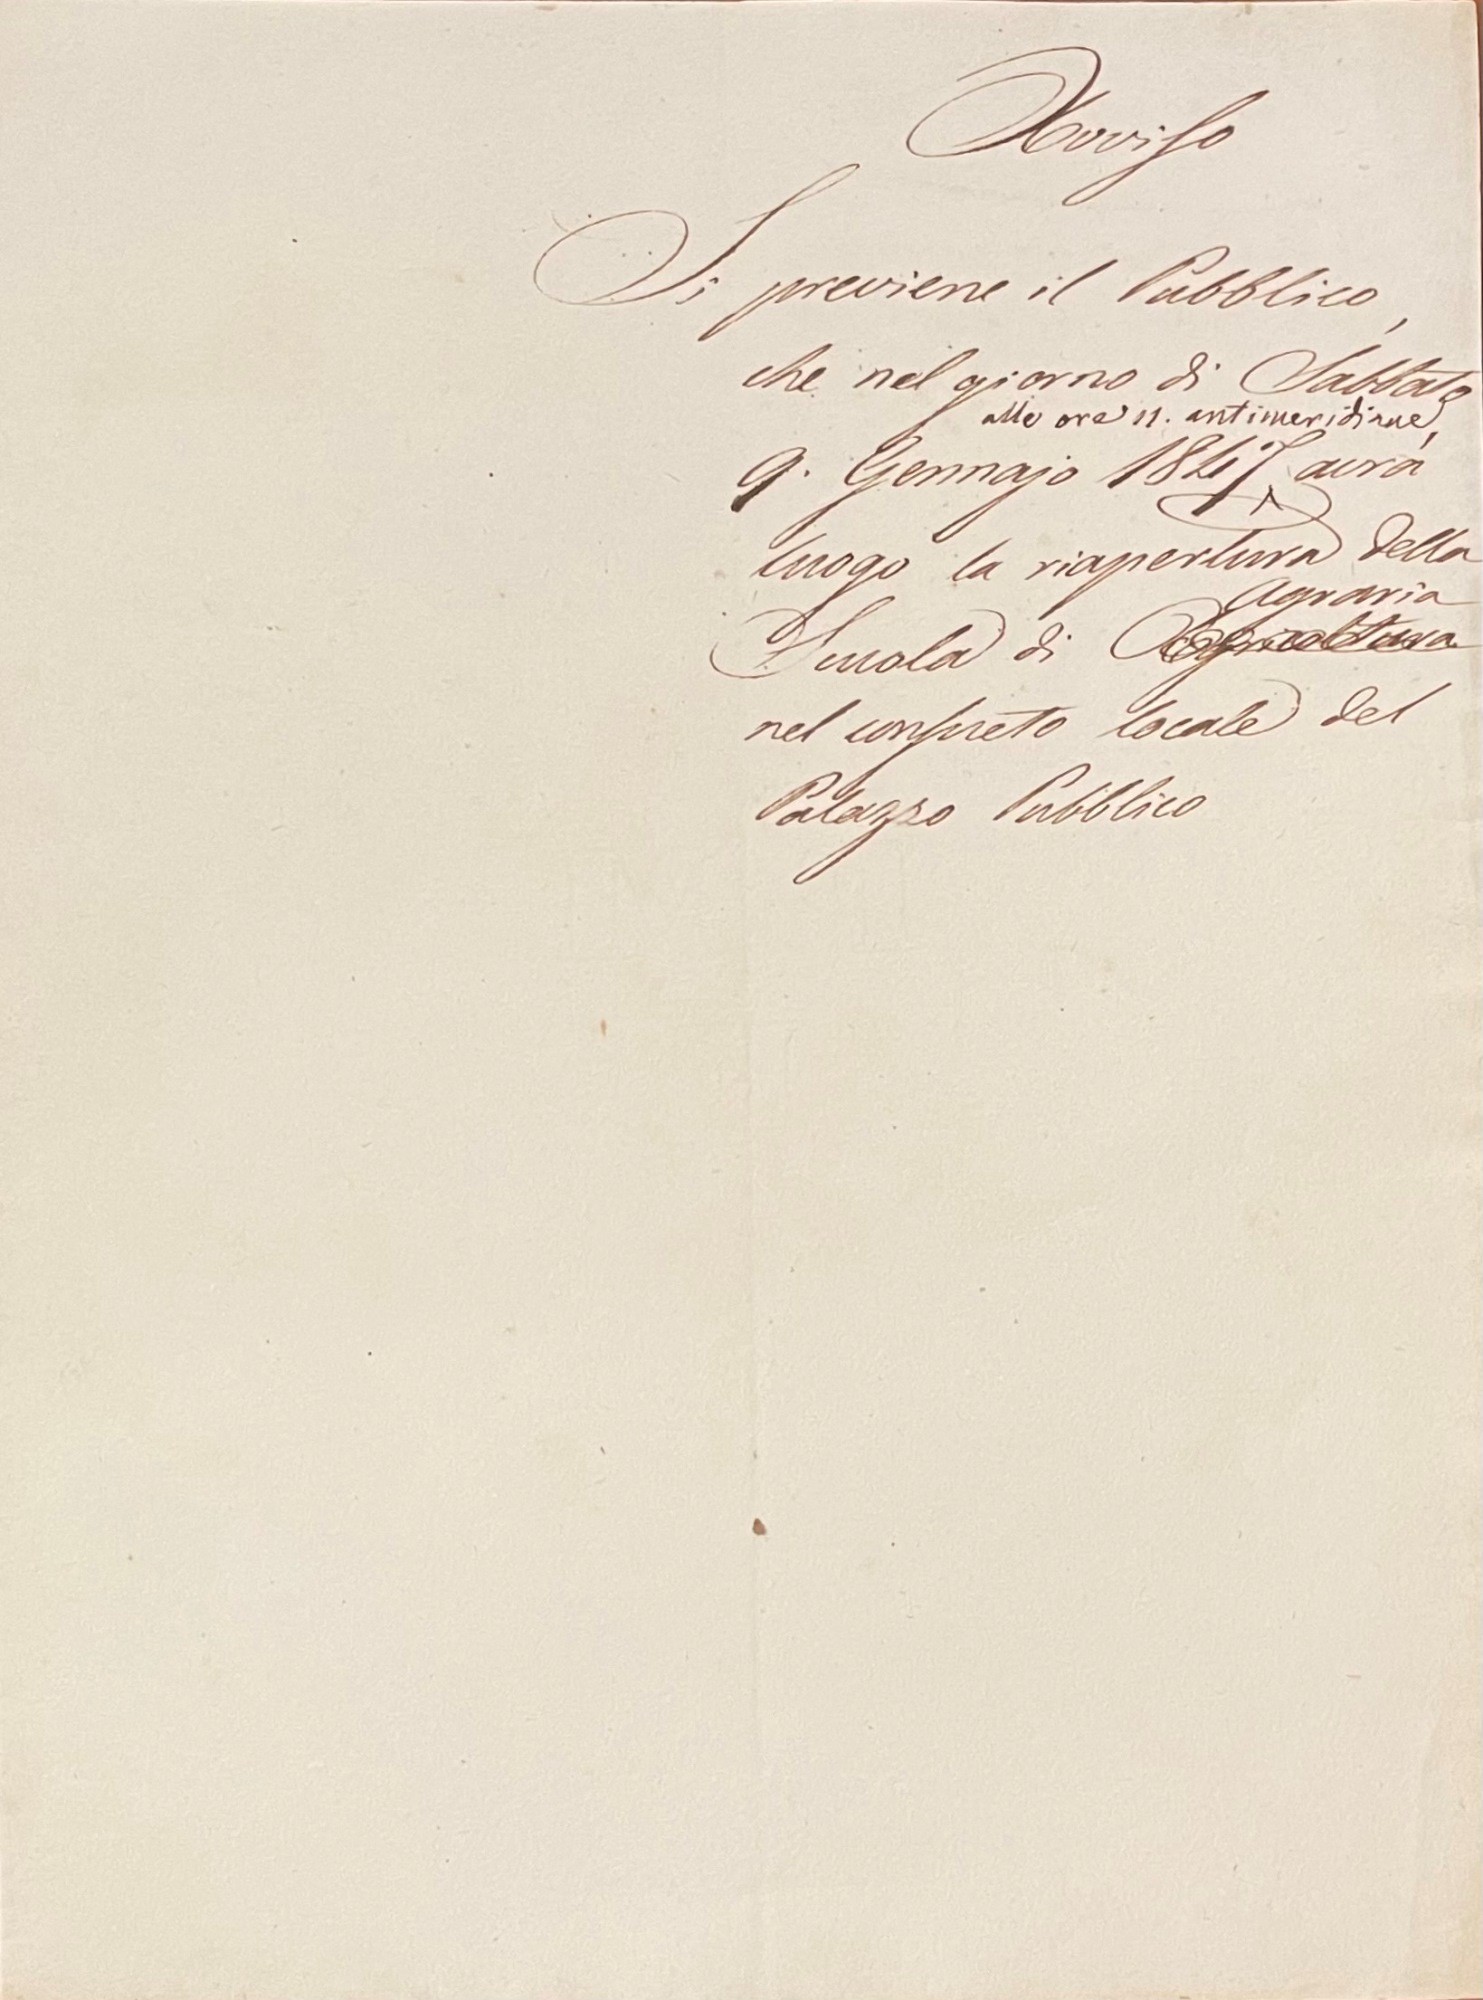 Avviso
Si previene il Pubblico,
che nel giorno di Sabbato
alle ore 11. antimeridiane,
9. Gennajo 1847 avrà
luogo la riapertura della
agraria
Scuola di Agricoltura
nel consueto locale del
Palazzo Pubblico